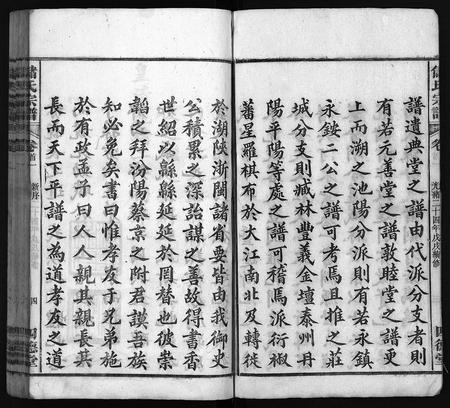 譜遺典堂之譜由代派分支者則
有若元善堂之譜敦睦堂之譜更
上而溯之池陽分派則有若永鎮
永銨二公之譜可考焉且推之莊
城分支則臧林豐義金壇泰州丹
陽平陽等處之譜可稽焉派衍椒
蕃星羅棋布於大江南北及轉徙
於湖陝浙閩諸省要皆由我御史
公積累之深詒謀之善故得書香
世紹以縣縣延延於罔替也彼崇
韜之拜汾陽蔡京之附君謨吾族
知必免矣書曰惟孝友于兄弟施
於有政孟子曰人人親其親長其
長而天下平譜之為道孝友之道
儲氏宗譜
卷首一
四